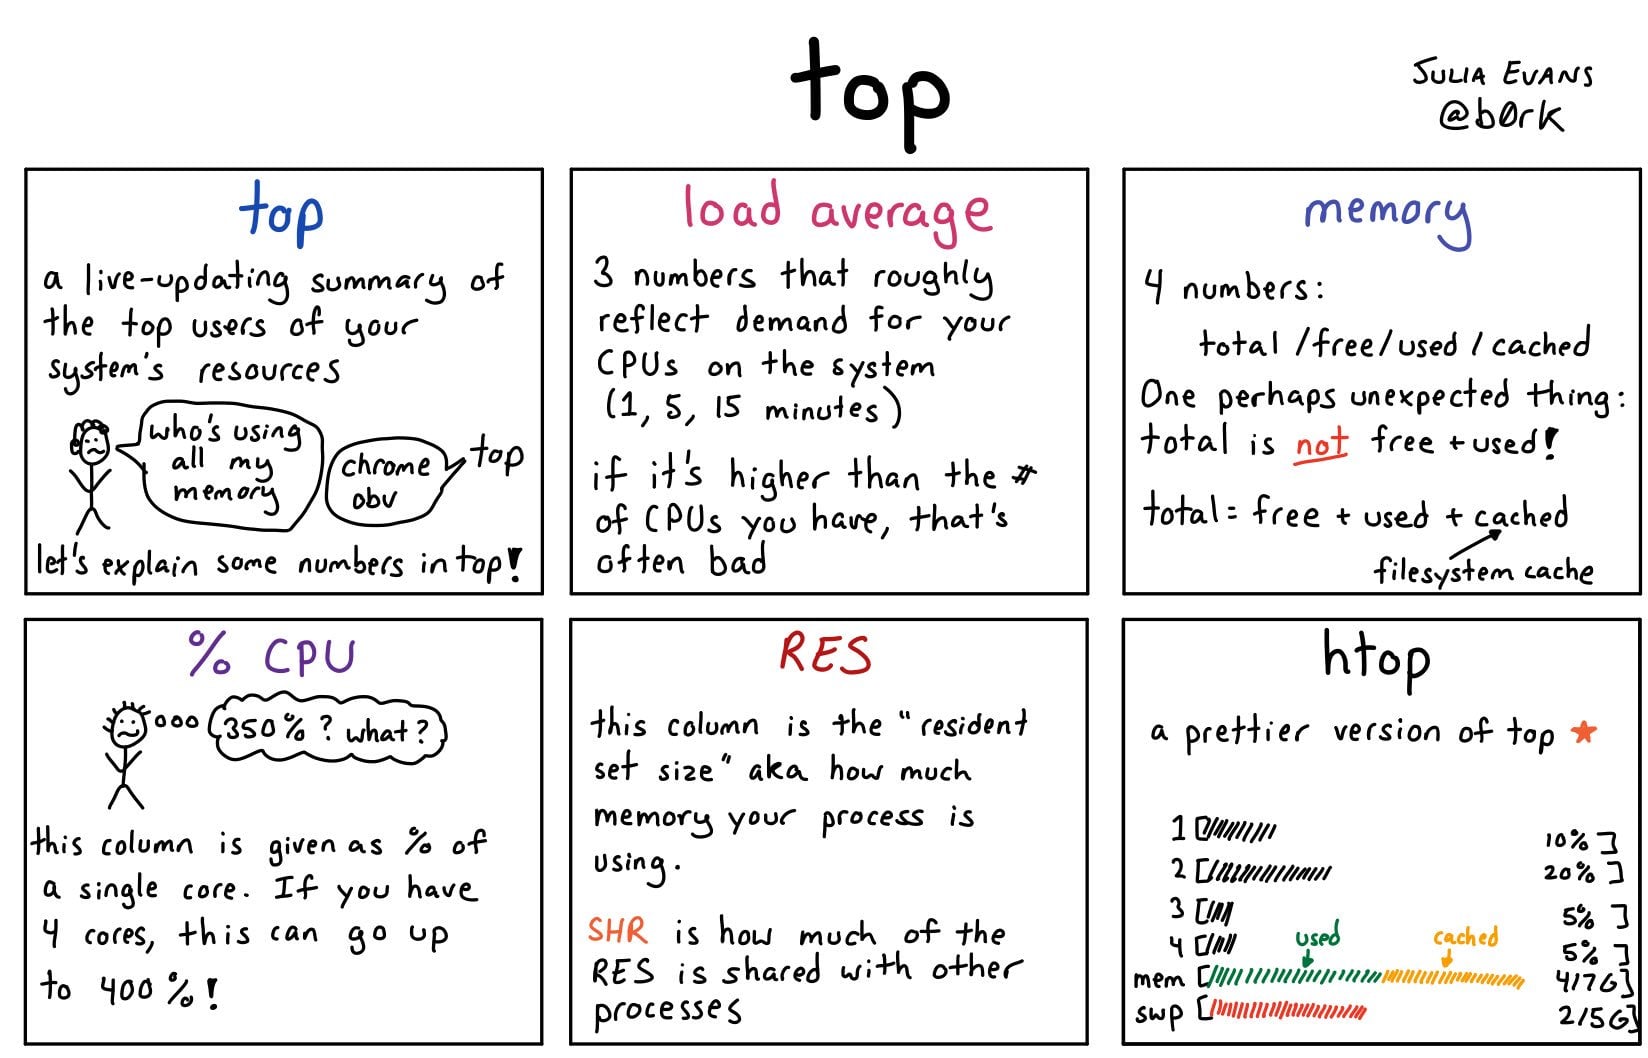 top
JULIA EVANS
@b0rk
top
a live-updating summary of
the top users of your
system's resources
who's using
all my
memory
chrome
obv
top
let's explain some numbers in top!
load average
3 numbers that roughly
reflect demand for your
CPUs on the system
(1, 5, 15 minutes)
if it's higher than the #
of CPUs you have, that's
often bad
memory
4 numbers:
total / free / used / cached
One perhaps unexpected thing:
total is not free + used!
total = free + used + cached
filesystem cache
% CPU
350% ? what?
this column is given as % of
a single core. If you have
4 cores, this can go up
to 400 %!
RES
this column is the "resident
set size" aka how much
memory your process is
using.
SHR is how much of the
RES is shared with other
processes
htop
a prettier version of top
1 [ 10% ]
2 [ 20% ]
3 [ 5% ]
4 [ 5% ]
used cached
mem [ 4/7G]
swp [ 2/5G]